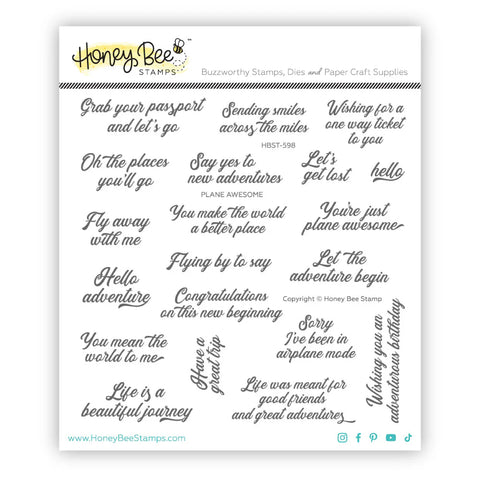 Honey Bee
STAMPS
Buzzworthy Stamps, Dies and Paper Craft Supplies
Grab your passport
and let's go
Sending smiles
across the miles
Wishing for a
one way ticket
to you
HBST-598
Oh the places
you'll go
Say yes to
new adventures
Let's
get lost
hello
PLANE AWESOME
Fly away
with me
You make the world
a better place
You're just
plane awesome
Flying by to say
Let the
adventure begin
Hello
adventure
Congratulations
on this new beginning
Copyright © Honey Bee Stamp
You mean the
world to me
Have a
great trip
Sorry
I've been in
airplane mode
Wishing you an
adventurous birthday
Life is a
beautiful journey
Life was meant for
good friends
and great adventures
www.HoneyBeeStamps.com